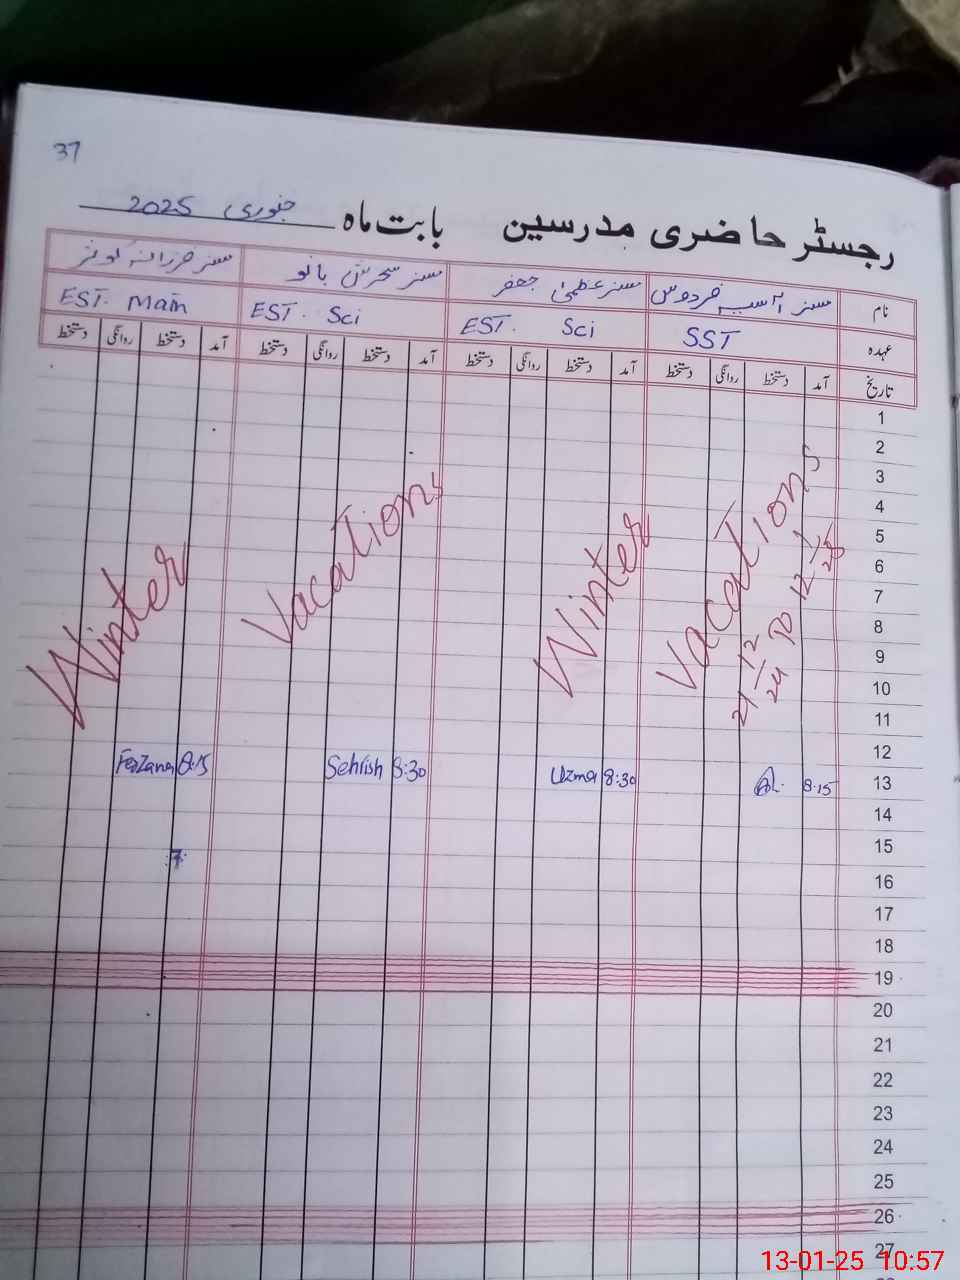 37
رجسٹر حاضری مدرسین بابت ماہ جنوری 2025
نام مسز آسیہ فردوس مسز عظمیٰ جعفر مسز سحرش بانو مسز فرزانہ کوثر
عہدہ SST EST. Sci EST. Sci EST. Main
تاریخ آمد دستخط روانگی دستخط آمد دستخط روانگی دستخط آمد دستخط روانگی دستخط آمد دستخط روانگی دستخط
1
2
3
4
5
6
7
8
9
10
11
12
13 8.15 8:30 Uzma 8:30 Sehrish 8:15 Farzana
14
15
16
17
18
19
20
21
22
23
24
25
26
27
Winter Vacations Winter Vacations
21 12/24 TO 12 1/25
13-01-25 10:57